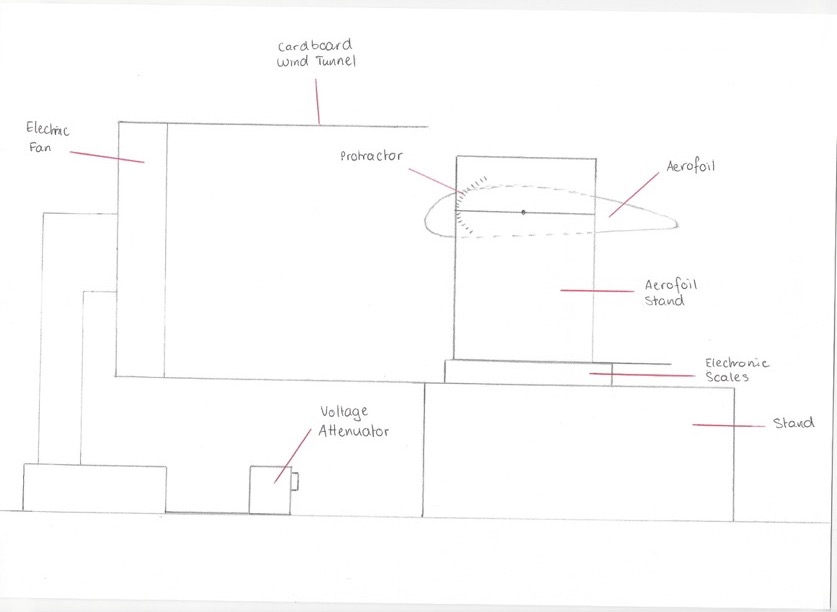 Cardboard
Wind Tunnel
Electric
Fan
Protractor
Aerofoil
Aerofoil
Stand
Electronic
Scales
Voltage
Attenuator
Stand